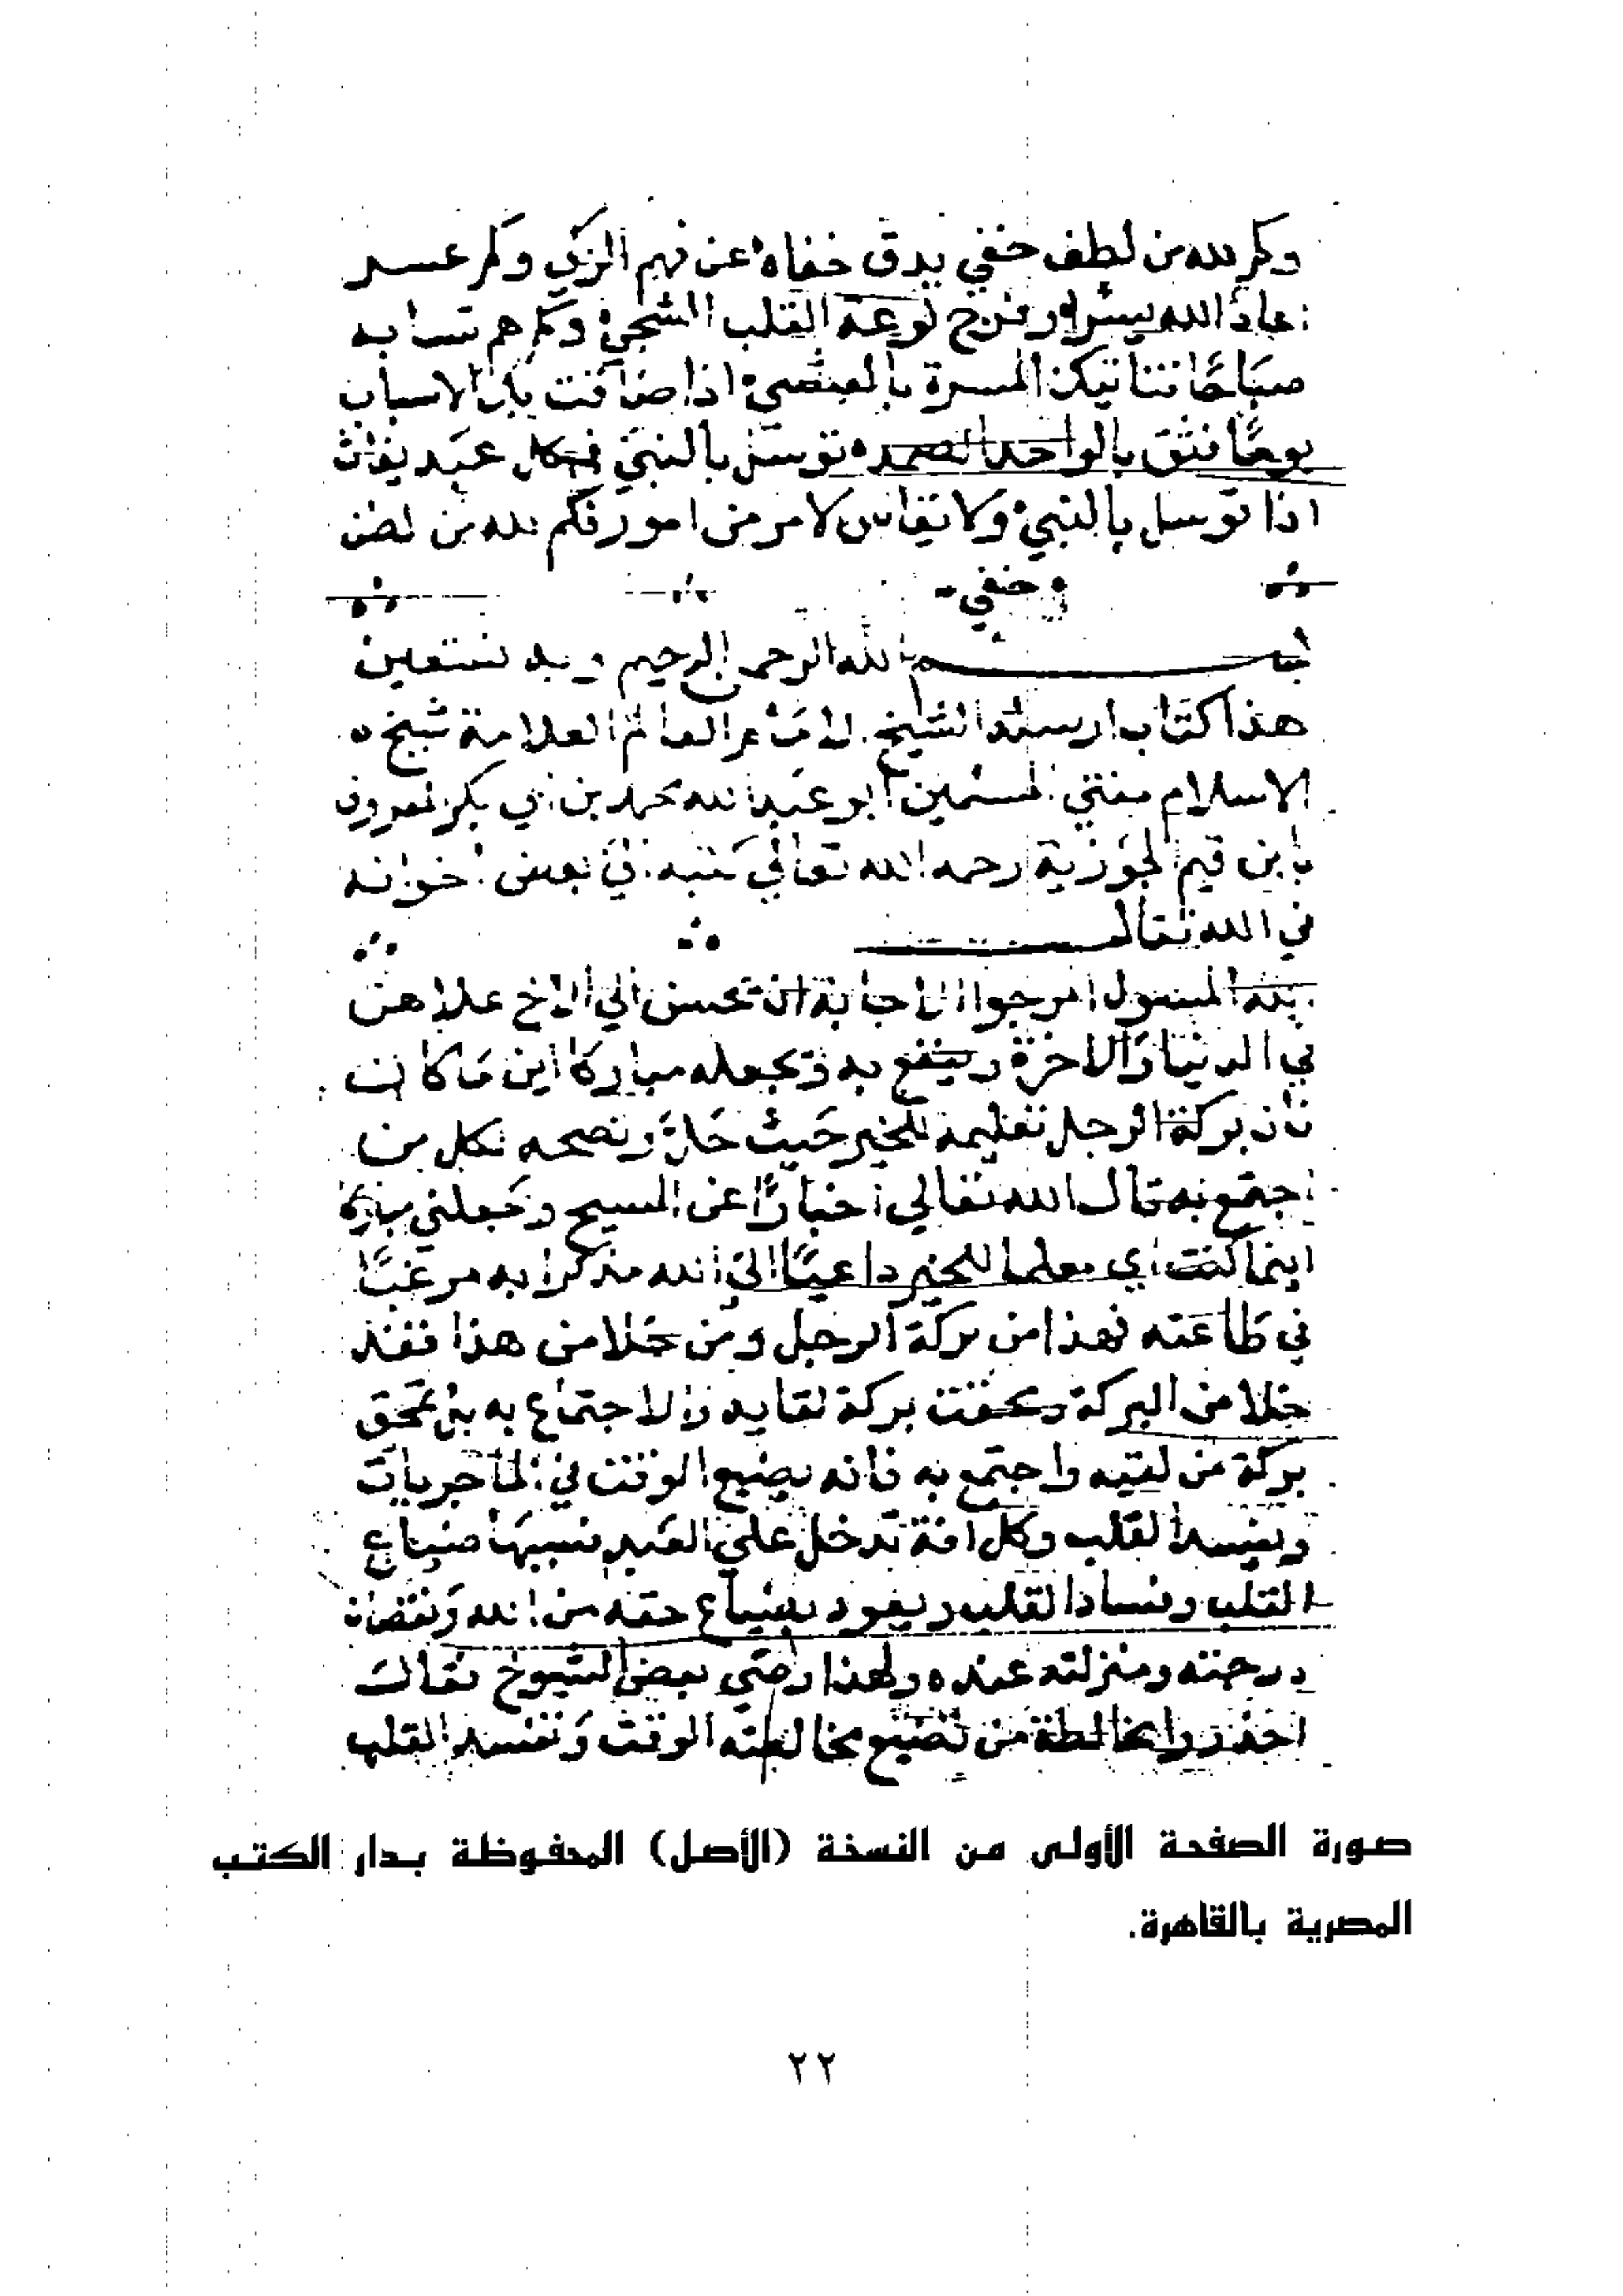 وكم لله من لطف خفي يدق خفاه عن فهم الزكي وكم عسر
اعاد الله يسرا وفرج لوعة القلب الشجي وكم هم تساء به
صباحا فتاتيك المسرة بالعشي اذا ضاقت بك الاسباب
يوما فثق بالواحد الصمد توسل بالنبي فكل عبد يغاث
اذا توسل بالنبي ولا تقاس لامر من امور فكم لله من لطف
خفي
بسم الله الرحمن الرحيم وبه نستعين
هذا كتاب ارسله الشيخ الامام العالم العلامة شيخ
الاسلام مفتي المسلمين ابو عبد الله محمد بن ابي بكر المعروف
بابن قيم الجوزية رحمه الله تعالى كتبه الي بعض اخوانه
في الله تعالى
الله المسول المرجوا الاجابة ان تحسن الي الاخ علا
في الدنيا والاخرة وينفع به وتجعله مباركا اين ما كانت
فان بركة الرجل تعليمه للخير حيث حل ونصحه لكل من
اجتمع به قال الله تعالي اخبارا عن المسيح وجعلني مباركا
اينما كنت اي معلما للخير داعيا الي الله مذكرا به مرغبا
في طاعته فهذا من بركة الرجل ومن خلا من هذا فقد
خلا من البركة ومحقت بركة لقايه والاجتماع به بل تمحق
بركة من لقيه واجتمع به فانه يضيع الوقت في الماجريات
ويفسد القلب وكل افة تدخل علي العبد فسببها ضياع
القلب وفساد القلب ويعود بضياع حقه من الله ونقصان
درجته ومنزلته عنده ولهذا وصي بعض الشيوخ فقال
احذروا مخالطة من تضيع مخالطته الوقت وتفسد القلب
صورة الصفحة الأولى من النسخة (الأصل) المحفوظة بدار الكتب
المصرية بالقاهرة.
٢٢